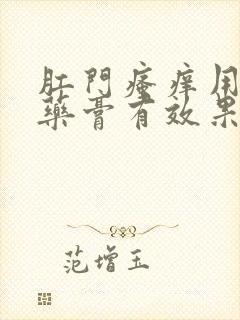 肛門瘙痒用
藥膏有效果
范增玉